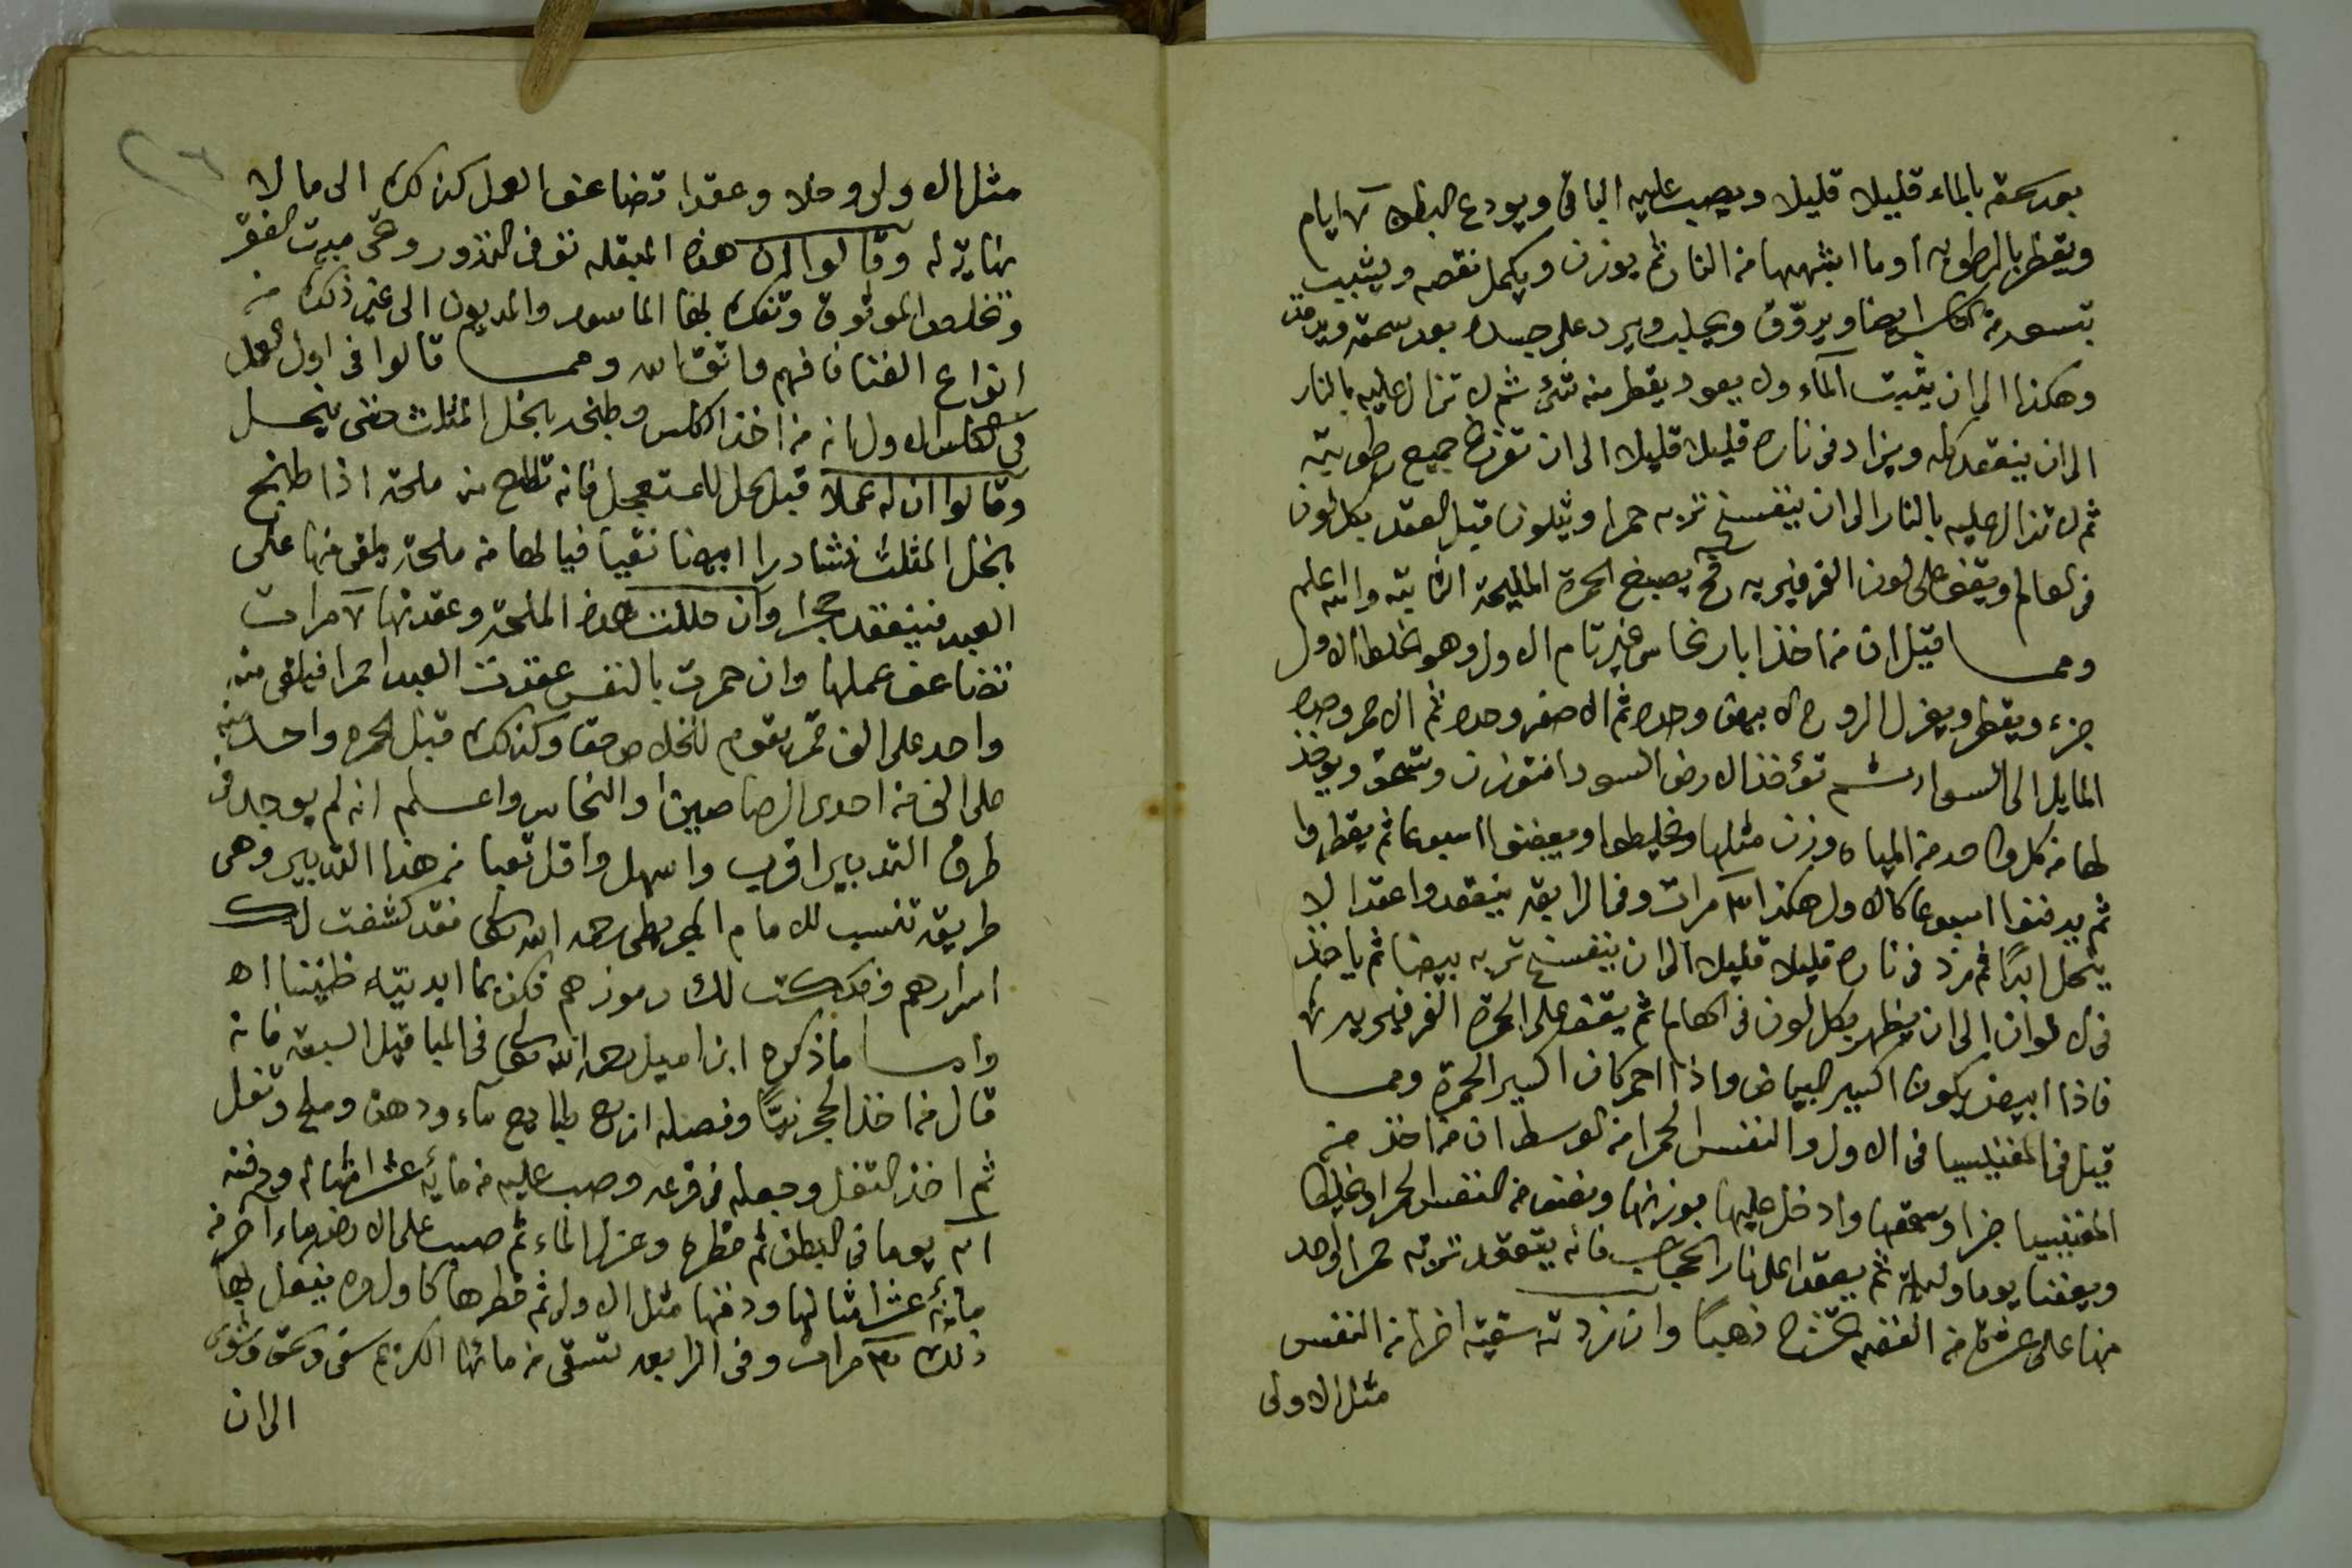 بعد سحقه بالماء قليلا قليلا ويصب عليه الباقى ويودع البطن ٧ ايام
ويقطر بالرطوبه او ما اشبهها من النار ثم يوزن ويكمل نقصه ويشبب
بتسعه من ايضا ويروّق ويحلب ويرد على جسده بعد سحقه ويدفن
وهكذا الى ان يثبت الماء ولا يعود يقطر منه شئ ثم لا تزال عليه بالنار
الى ان ينعقد كله ويزاد فى ناره قليلا قليلا الى ان تفرغ جميع رطوبته
ثم لا تزال عليه بالنار الى ان يتفسخ تربه حمرا ويتلون قبل العقد بكل لون
فى العالم ويقف على لون الفرفيريه يصبغ الحمرة المليحة الثابته والله اعلم
ومما قيل ان من اخذ ابار نحاس غير تام الاول وهو الخلط الاول
جزء ويقطر ويعزل الروح الابيض وحده ثم الاصفر وحده ثم الاحمر وحده
المايل الى السواد ثم تؤخذ الارض السودا فتوزن وتسحق ويوخذ
لها من كل واحد من المياه وزن مثلها ويخلطوا ويعفنوا اسبوعا ثم يقطروا
ثم يدفنوا اسبوعا كالاول هكذا ٣ مرات وفى الرابعة ينعقدوا عقدا لا
ينحل ابدًا ثم زد فى ناره قليلا قليلا الى ان يتفسخ تربه بيضا ثم ياخذ
فى الالوان الى ان يظهر بكل لون فى العالم ثم يقف على الحمرة الفرفيريه
فاذا ابيض يكون اكسير البياض واذا احمر كان اكسير الحمرة ومما
قيل فى المغنيسيا فى الاول والنفس الحمرا من الوسط ان من اخذ من
المغنيسيا جزا وسحقها وادخل عليها بوزنها ونصف من النفس الحمرا ويخلطا
ويعفنا يوما وليلة ثم يعقدا على نار الحضانه فانه يتعقد تربه حمرا واحد
منها على عشرة من الفضه تخرج ذهبًا وان زدته سقيته اخرا من النفس
مثل الاولى
مثل الاولى وحلا وعقدا تضاعف العمل كذلك الى ما لا
نهاية له وقالوا ان هذه المبقله توفى النذور وهى مبدت الفقر
وتخلص الموثوق وتفك بها الماسور والمديون الى غير ذلك من
انواع الغنا فافهم واتق الله ومما قالوا فى اول العمل
فى الكلس الاول انه من اخذ الكلس وطبخه بخل المثلث حتى ينحل
وقالوا ان له عملا قبل الحل للمستعجل فانه تطلع من ملحه اذا طبخ
بخل المثلث نشادرا ابيضا نقيا فيا لها من ملحة يلقى منها على
العبد فينعقد حجرا وان حللت هذه الملحة وعقدتها ٧ مرات
تضاعف عملها وان حمرت بالنفس عقدت العبد احمرا فيلقى منه
واحد على الف قمر يقوم للخلاص حقا وكذلك قبل الحمره واحد منه
على الف من احدى الرصاصين او النحاس واعلم انه لم يوجد فى
طرق التدبير اقرب واسهل واقل تعبا من هذا التدبير وهى
طريقة تنسب للامام المجريطى رحمه الله تعالى فقد كشفت لك
اسرارهم وفككت لك رموزهم فكن بما ابديته ظنينا اه
واما ما ذكره ابن اميل رحمه الله تعالى فى المباقيل السبعه فانه
قال من اخذ الحجر نيًّا وفصله اربع طبايع ماء ودهن وملح وتفل
ثم اخذ التفل وجعله فى قرعه وصب عليه من مايه عشر امثاله ودفنه
٢١ يوما فى البطن ثم قطره وعزل الماء ثم صب على الارض ماء اخر من
مايه عشر امثالها ودفنها مثل الاولى ثم قطرها كاول مره يفعل بها
ذلك ٣ مرات وفى الرابعه تسقى من مائها الكريم سقى وسحق وشوى
الى ان